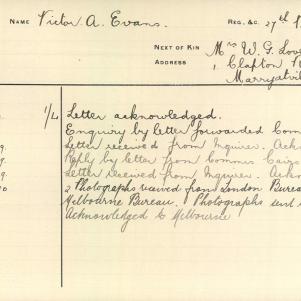 NAME Victor A. Evans. REG., &C. 27th
NEXT OF KIN Mrs W. G.
ADDRESS 1, Clapton
Letter acknowledged.
Enquiry by letter forwarded
Letter received from Inquirer.
Reply by letter from Commis Cairo
9. Letter received from Inquirer.
2 Photographs received from London Bureau
Melbourne Bureau. Photographs sent
Acknowledged to Melbourne